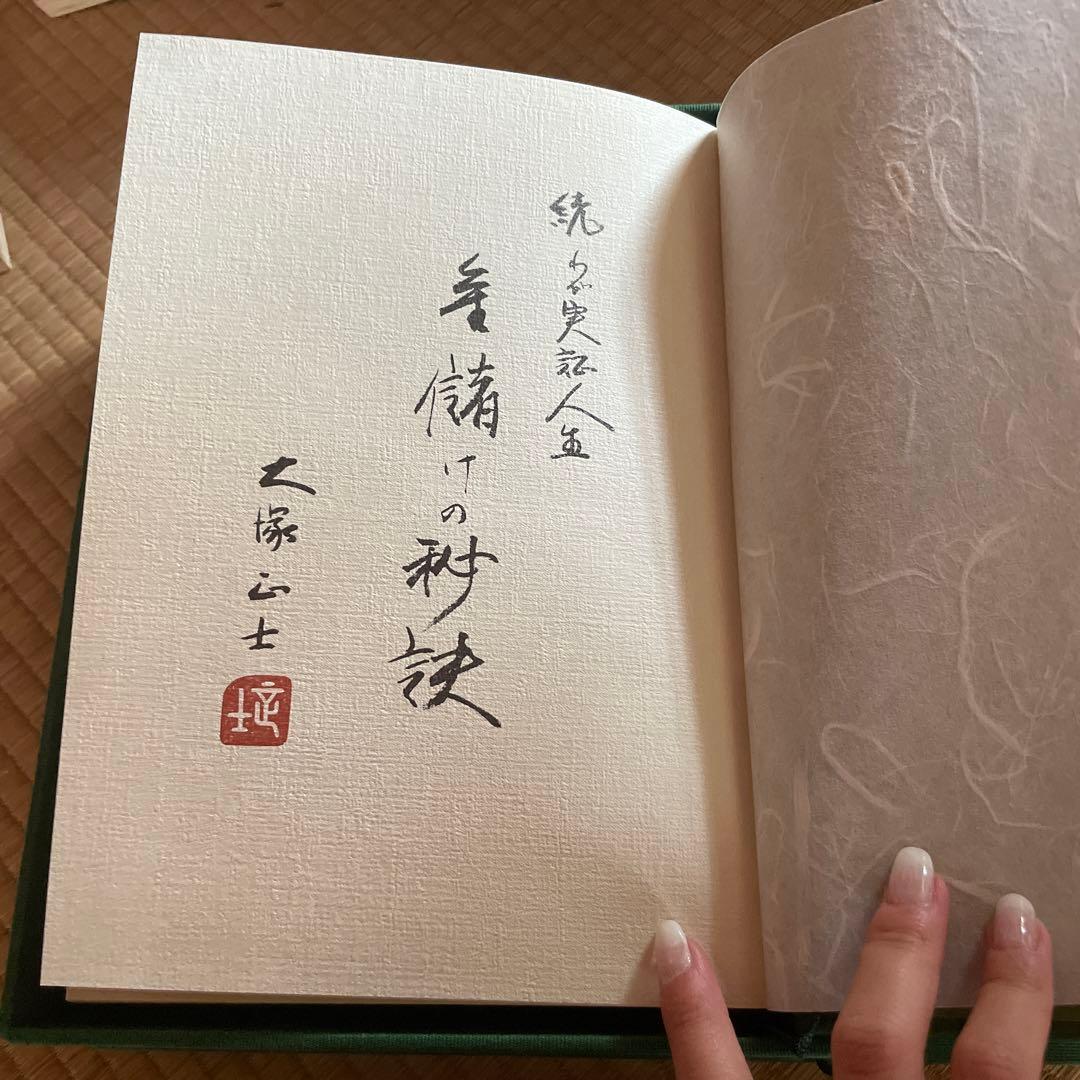 続わが実証人生
金儲けの秘訣
大塚正士